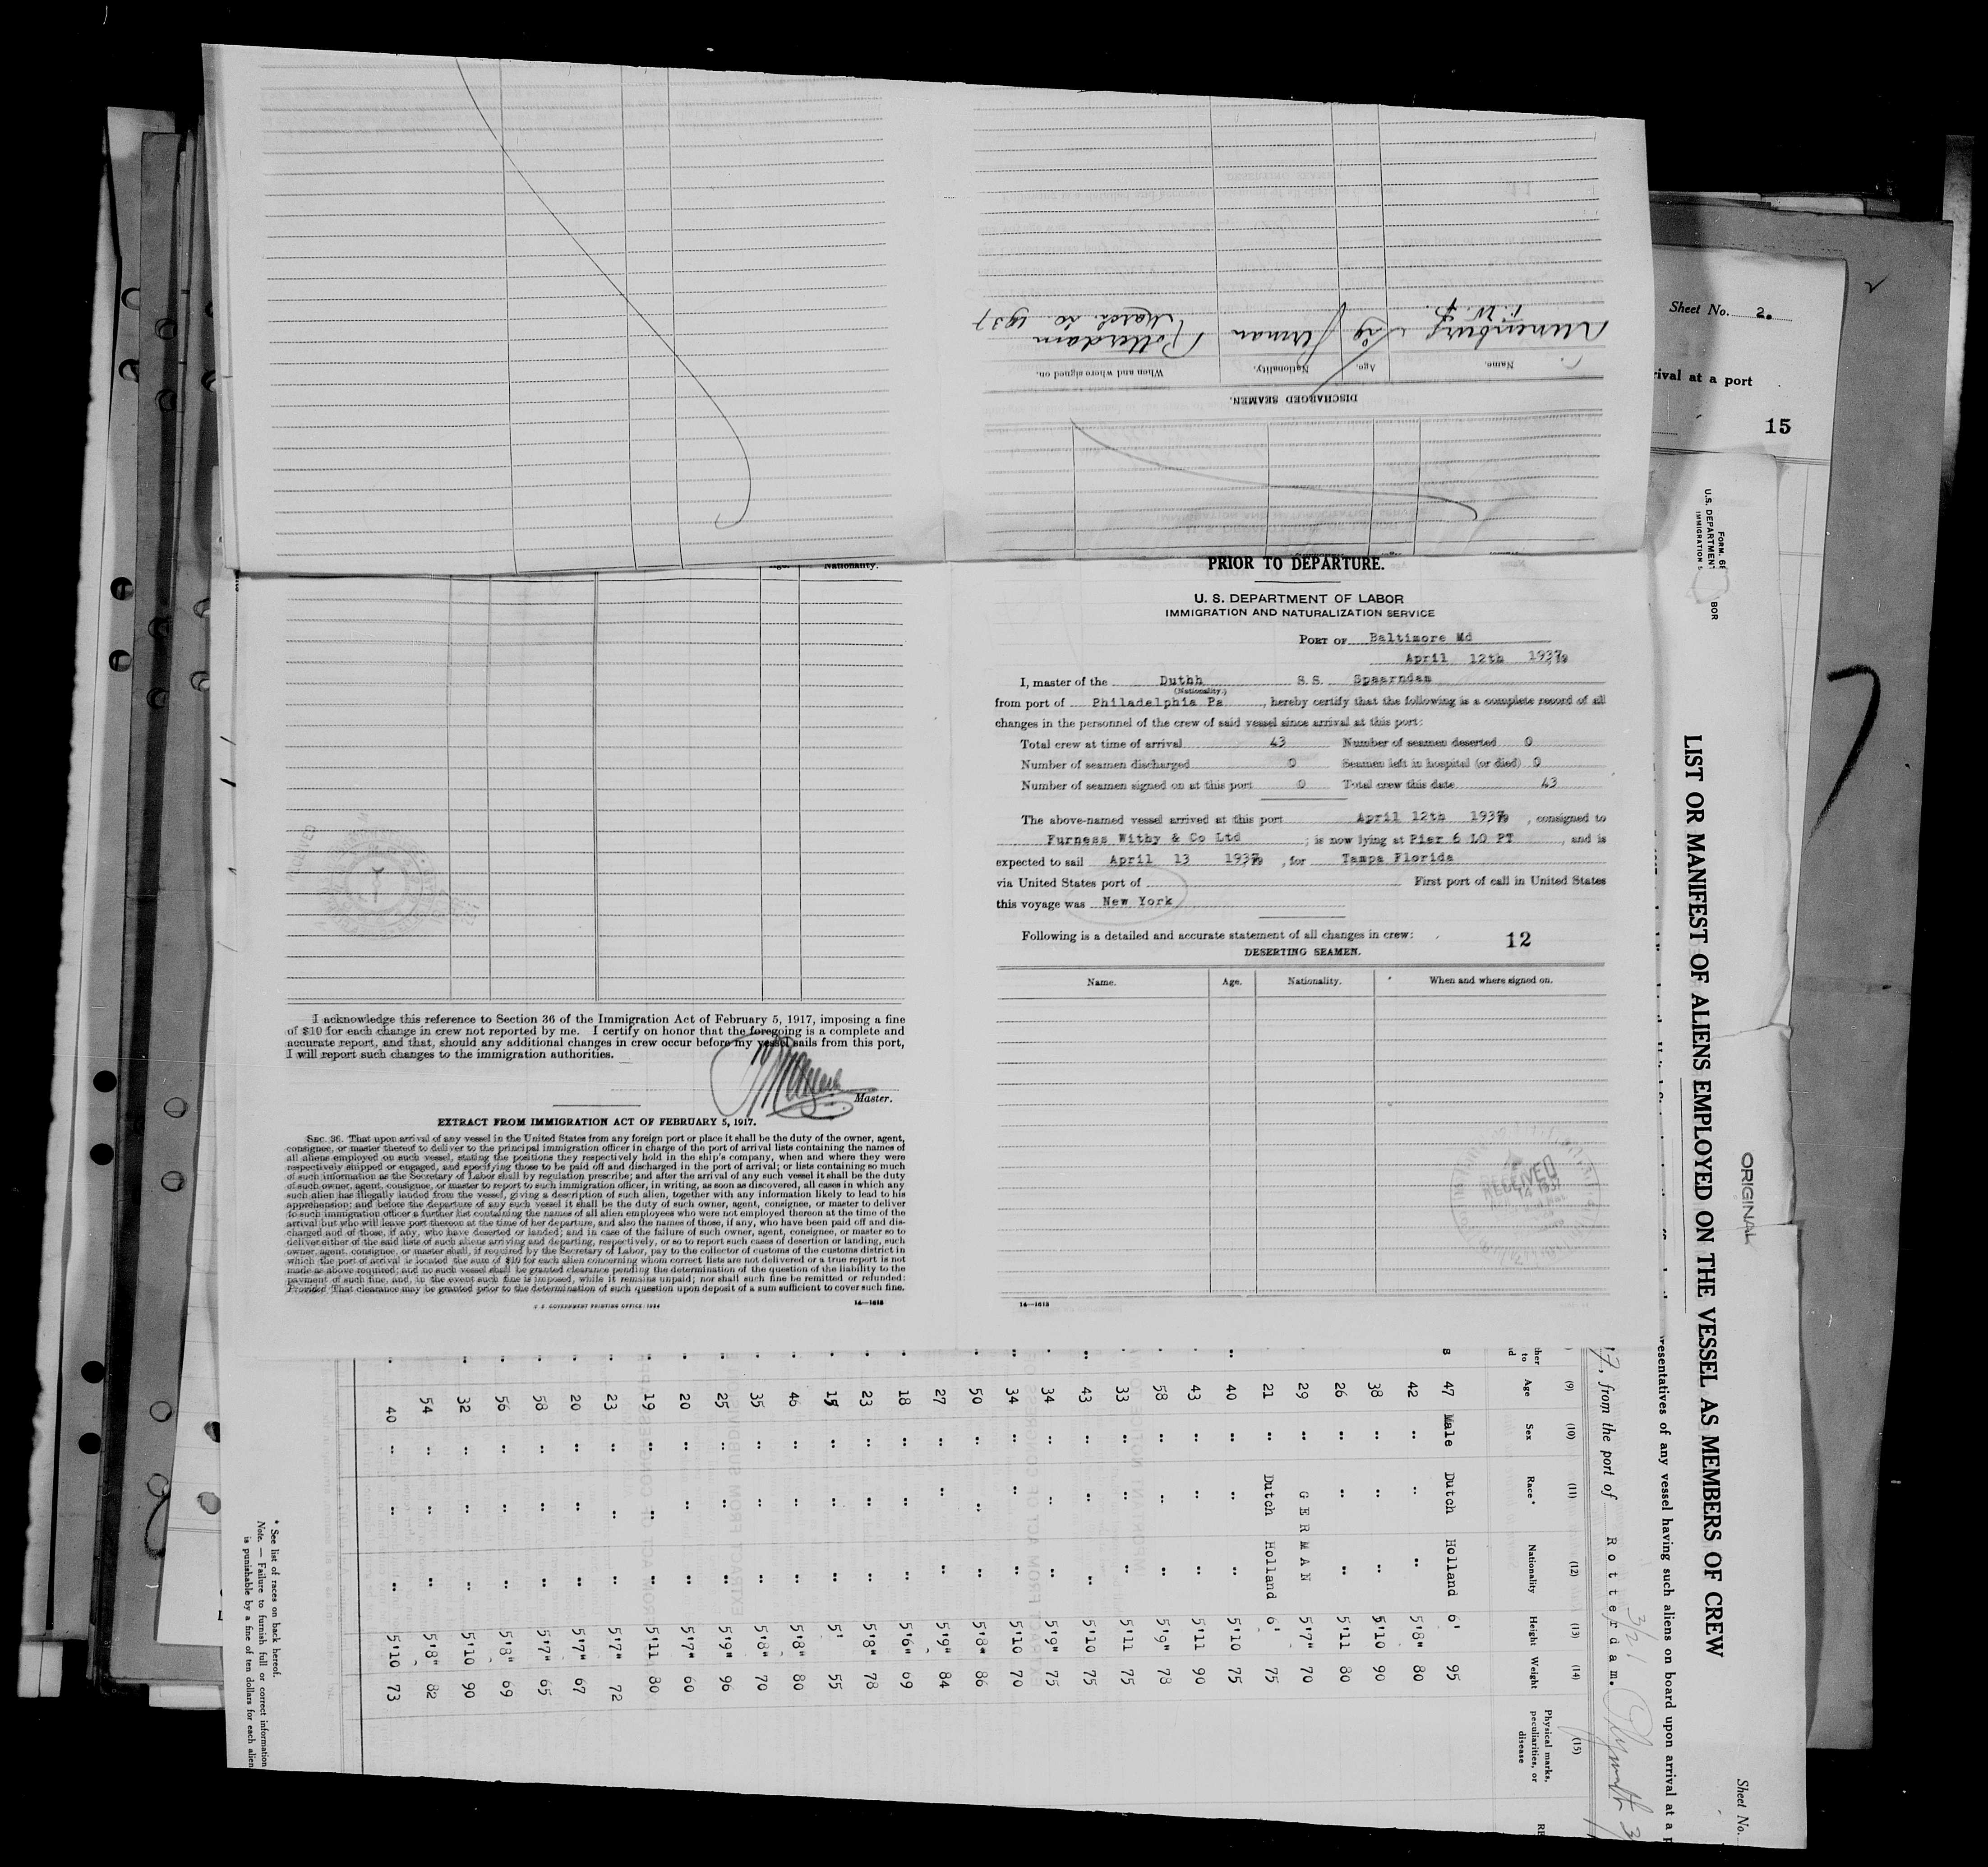 Sheet No. 2.
rival at a port
15
DISCHARGED SEAMEN.
Name.
Age.
Nationality.
When and where signed on.
29
German
Rotterdam
March 20 1937
Nationality.
I acknowledge this reference to Section 36 of the Immigration Act of February 5, 1917, imposing a fine
of $10 for each change in crew not reported by me. I certify on honor that the foregoing is a complete and
accurate report, and that, should any additional changes in crew occur before my vessel sails from this port,
I will report such changes to the immigration authorities.
Master.
EXTRACT FROM IMMIGRATION ACT OF FEBRUARY 5, 1917.
SEC. 36. That upon arrival of any vessel in the United States from any foreign port or place it shall be the duty of the owner, agent,
consignee, or master thereof to deliver to the principal immigration officer in charge of the port of arrival lists containing the names of
all aliens employed on such vessel, stating the positions they respectively hold in the ship's company, when and where they were
respectively shipped or engaged, and specifying those to be paid off and discharged in the port of arrival; or lists containing so much
of such information as the Secretary of Labor shall by regulation prescribe; and after the arrival of any such vessel it shall be the duty
of such owner, agent, consignee, or master to report to such immigration officer, in writing, as soon as discovered, all cases in which any
such alien has illegally landed from the vessel, giving a description of such alien, together with any information likely to lead to his
apprehension; and before the departure of any such vessel it shall be the duty of such owner, agent, consignee, or master to deliver
to such immigration officer a further list containing the names of all alien employees who were not employed thereon at the time of the
arrival but who will leave port thereon at the time of her departure, and also the names of those, if any, who have been paid off and dis-
charged and of those, if any, who have deserted or landed; and in case of the failure of such owner, agent, consignee, or master so to
deliver either of the said lists of such aliens arriving and departing, respectively, or so to report such cases of desertion or landing, such
owner, agent, consignee, or master shall, if required by the Secretary of Labor, pay to the collector of customs of the customs district in
which the port of arrival is located the sum of $10 for each alien concerning whom correct lists are not delivered or a true report is not
made as above required; and no such vessel shall be granted clearance pending the determination of the question of the liability to the
payment of such fine, and, in the event such fine is imposed, while it remains unpaid; nor shall such fine be remitted or refunded:
Provided, That clearance may be granted prior to the determination of such question upon deposit of a sum sufficient to cover such fine.
U. S. GOVERNMENT PRINTING OFFICE: 1934
14—1618
PRIOR TO DEPARTURE.
U. S. DEPARTMENT OF LABOR
IMMIGRATION AND NATURALIZATION SERVICE
PORT OF Baltimore Md
April 12th 1937
I, master of the Duthh S.S. Spaarndam
(Nationality.)
from port of Philadelphia Pa, hereby certify that the following is a complete record of all
changes in the personnel of the crew of said vessel since arrival at this port:
Total crew at time of arrival 43 Number of seamen deserted 0
Number of seamen discharged 0 Seamen left in hospital (or died) 0
Number of seamen signed on at this port 0 Total crew this date 43
The above-named vessel arrived at this port April 12th 1937, consigned to
Furness Withy & Co Ltd; is now lying at Pier 6 LO PT, and is
expected to sail April 13 1937, for Tampa Florida
via United States port of First port of call in United States
this voyage was New York
Following is a detailed and accurate statement of all changes in crew:
12
DESERTING SEAMEN.
Name. Age. Nationality. When and where signed on.
RECEIVED
14—1618
ORIGINAL
Sheet No.
U.S. DEPARTMENT
BOR
IMMIGRATION
LIST OR MANIFEST OF ALIENS EMPLOYED ON THE VESSEL AS MEMBERS OF CREW
resentatives of any vessel having such aliens on board upon arrival at a p
7, from the port of Rotterdam. 3/21 Plymouth
(9) (10) (11) (12) (13) (14) (15)
Age Sex Race* Nationality Height Weight Physical marks, peculiarities, or disease
47 Male Dutch Holland 6' 95
42 " " " 5'8" 80
38 " " " 5'10 90
26 " " " 5'11 80
29 " GERMAN 5'7" 70
21 " Dutch Holland 6' 75
40 " " " 5'10 75
43 " " " 5'11 90
58 " " " 5'9" 78
33 " " " 5'11 75
43 " " " 5'10 75
34 " " " 5'9" 75
34 " " " 5'10 70
50 " " " 5'8" 86
27 " " " 5'9" 84
18 " " " 5'6" 69
23 " " " 5'8" 78
15 " " " 5' 55
46 " " " 5'8" 80
35 " " " 5'8" 70
25 " " " 5'9" 96
20 " " " 5'7" 60
19 " " " 5'11 80
23 " " " 5'7" 72
20 " " " 5'7" 67
58 " " " 5'7" 65
56 " " " 5'8" 69
32 " " " 5'10 90
54 " " " 5'8" 82
40 " " " 5'10 73
* See list of races on back hereof.
Note. — Failure to furnish full or correct information
is punishable by a fine of ten dollars for each alien